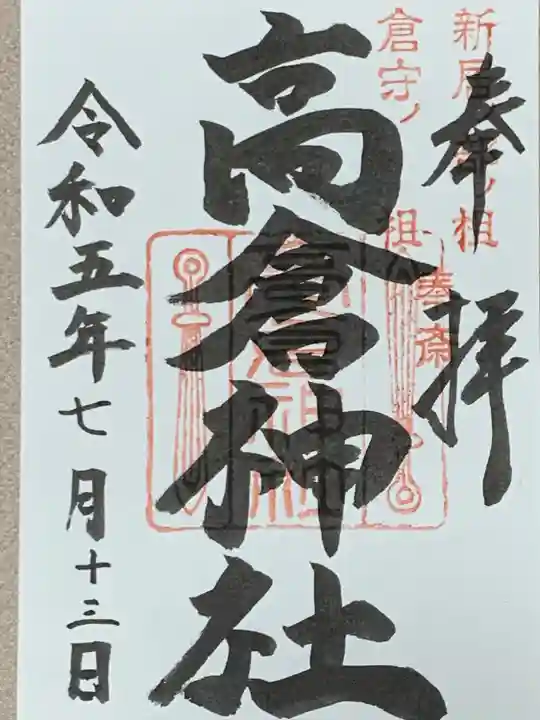 奉拝
新居
祖
倉守ノ
祖
奉斎
高倉神社
令和五年七月十三日